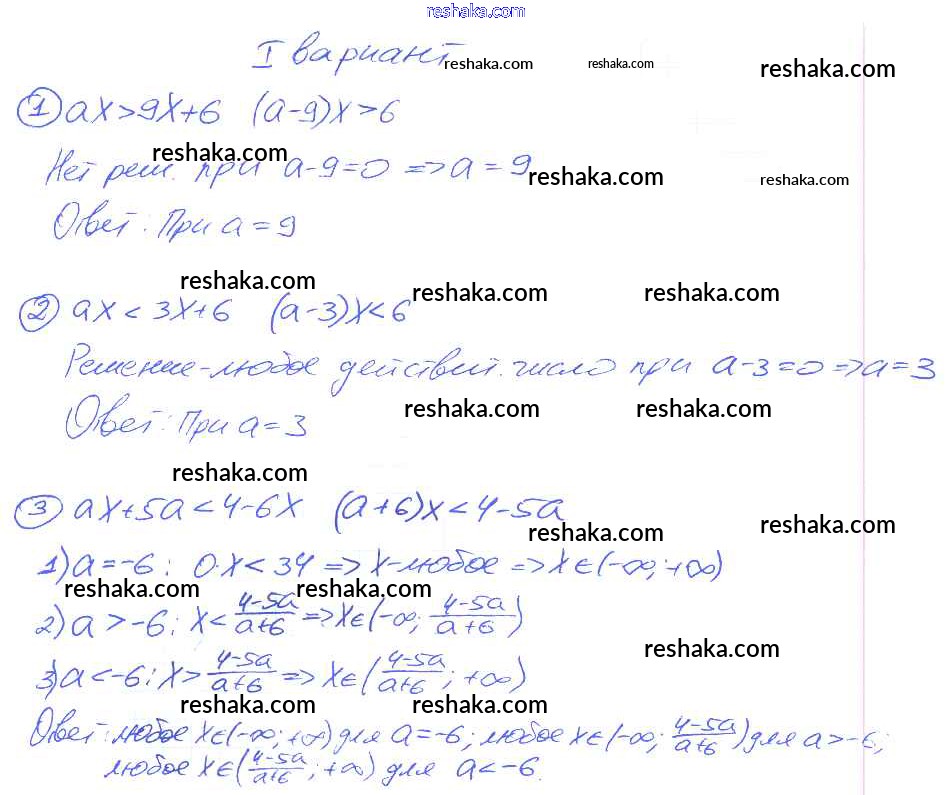 reshaka.com
I вариант
reshaka.com reshaka.com reshaka.com
① ax>9x+6 (a-9)x>6
reshaka.com
Нет реш. при a-9=0 => a=9
reshaka.com reshaka.com
Ответ: При a=9
reshaka.com reshaka.com reshaka.com
② ax<3x+6 (a-3)x<6
Решение-любое действит. число при a-3=0 => a=3
reshaka.com reshaka.com
Ответ: При a=3
reshaka.com
③ ax+5a<4-6x (a+6)x<4-5a
reshaka.com reshaka.com
1) a=-6; 0·x<34 => x-любое => x∈(-∞;+∞)
reshaka.com reshaka.com
2) a>-6; x<(4-5a)/(a+6) => x∈(-∞; (4-5a)/(a+6))
reshaka.com
3) a<-6; x>(4-5a)/(a+6) => x∈((4-5a)/(a+6); +∞)
reshaka.com reshaka.com
Ответ: любое x∈(-∞;+∞) для a=-6; любое x∈(-∞; (4-5a)/(a+6)) для a>-6;
любое x∈((4-5a)/(a+6); +∞) для a<-6.